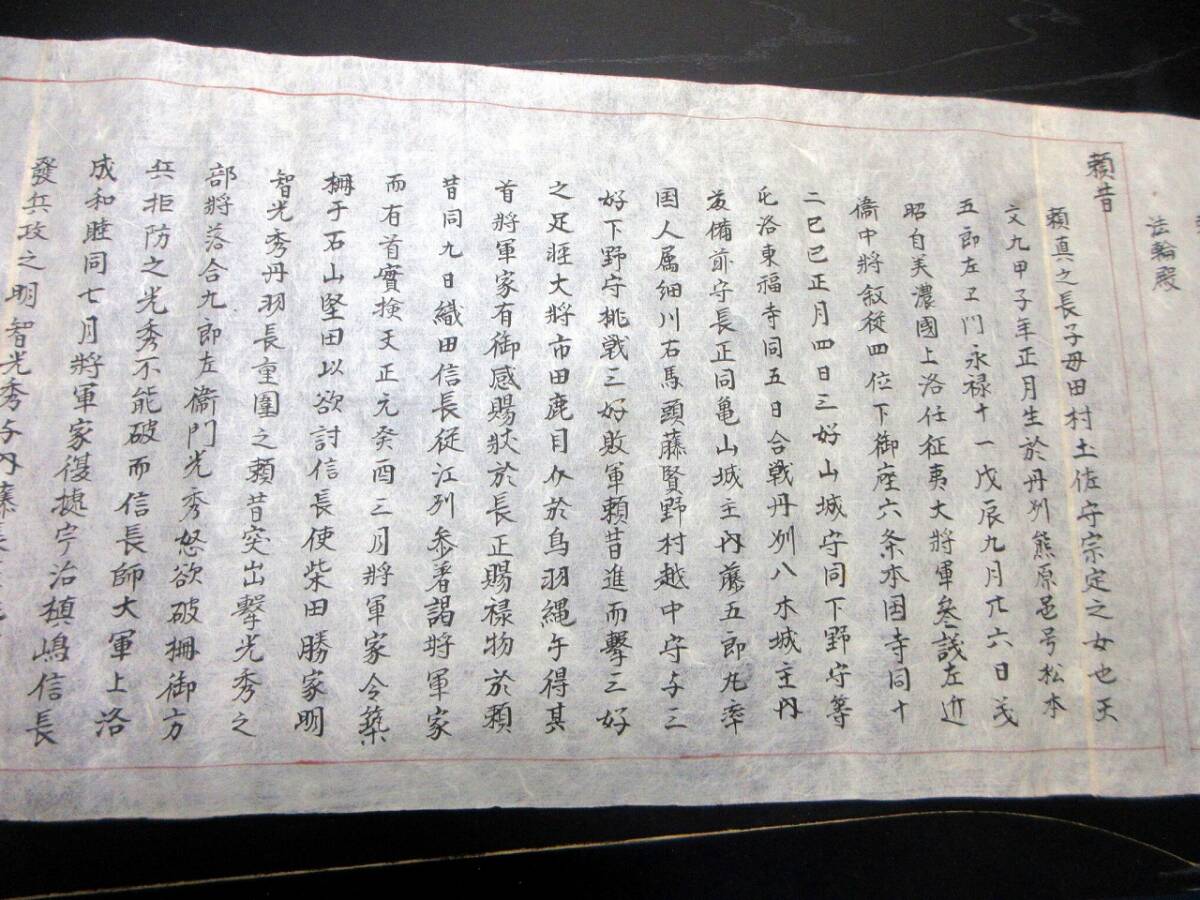 法輪殿
頼昔
頼真之長子母田村土佐守宗定之女也天
文九甲子年正月生於丹州熊原邑号松本
五郎左ヱ門永禄十一戊辰九月廿六日義
昭自美濃國上洛任征夷大將軍參議左近
衛中將叙従四位下御座六条本国寺同十
二己巳正月四日三好山城守同下野守等
屯洛東福寺同五日合戦丹州八木城主内
藤備前守長正同亀山城主内藤五郎丸率
国人属細川右馬頭藤賢野村越中守与三
好下野守挑戦三好敗軍頼昔進而擊三好
之足軽大將市田鹿目介於鳥羽縄手得其
首將軍家有御感賜状於長正賜禄物於頼
昔同九日織田信長従江州参着謁將軍家
而有首實検天正元癸酉三月將軍家令築
柵于石山堅田以欲討信長使柴田勝家明
智光秀丹羽長重圍之頼昔突出擊光秀之
部將落合九郎左衛門光秀怒欲破柵御方
兵拒防之光秀不能破而信長師大軍上洛
成和睦同七月將軍家復據宇治槙嶋信長
發兵攻之明智光秀与内藤長